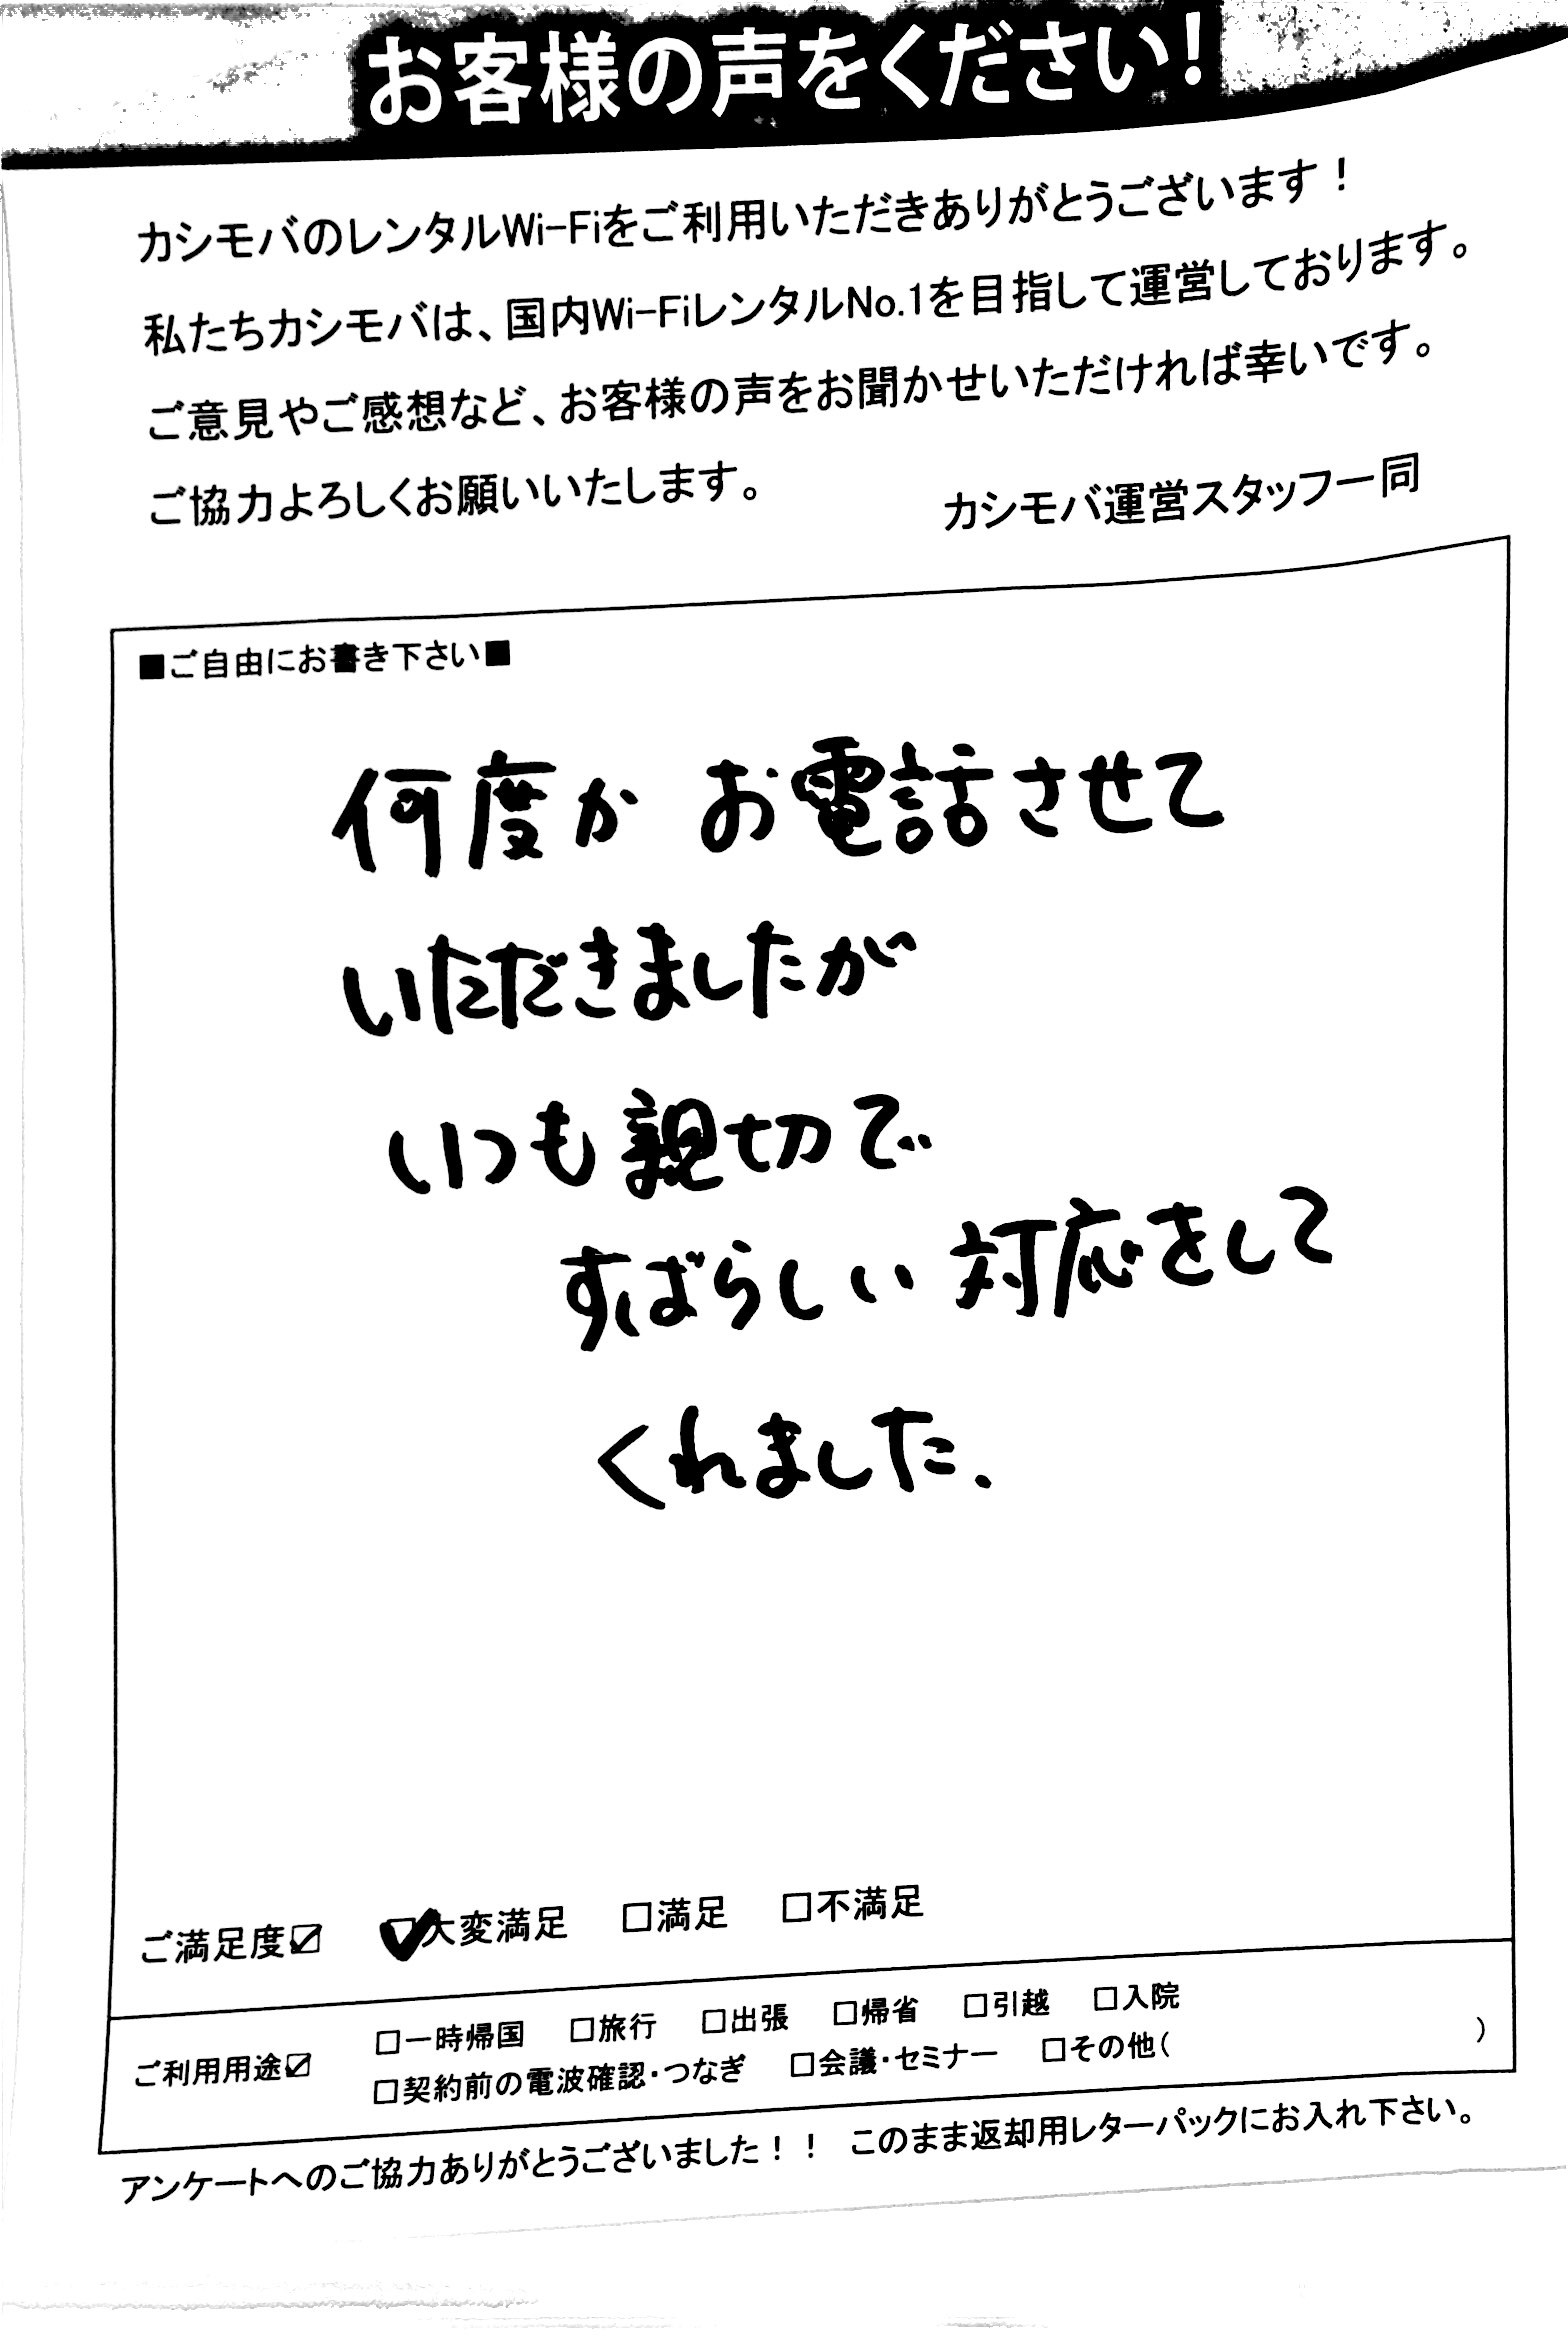 お客様の声をください!
カシモバのレンタルWi-Fiをご利用いただきありがとうございます!
私たちカシモバは、国内Wi-FiレンタルNo.1を目指して運営しております。
ご意見やご感想など、お客様の声をお聞かせいただければ幸いです。
ご協力よろしくお願いいたします。
カシモバ運営スタッフ一同
■ご自由にお書き下さい■
何度か お電話させて
いただきましたが
いつも親切で
すばらしい 対応をして
くれました.
ご満足度☑ ☑大変満足 □満足 □不満足
ご利用用途☑ □一時帰国 □旅行 □出張 □帰省 □引越 □入院
□契約前の電波確認・つなぎ □会議・セミナー □その他( )
アンケートへのご協力ありがとうございました!! このまま返却用レターパックにお入れ下さい。